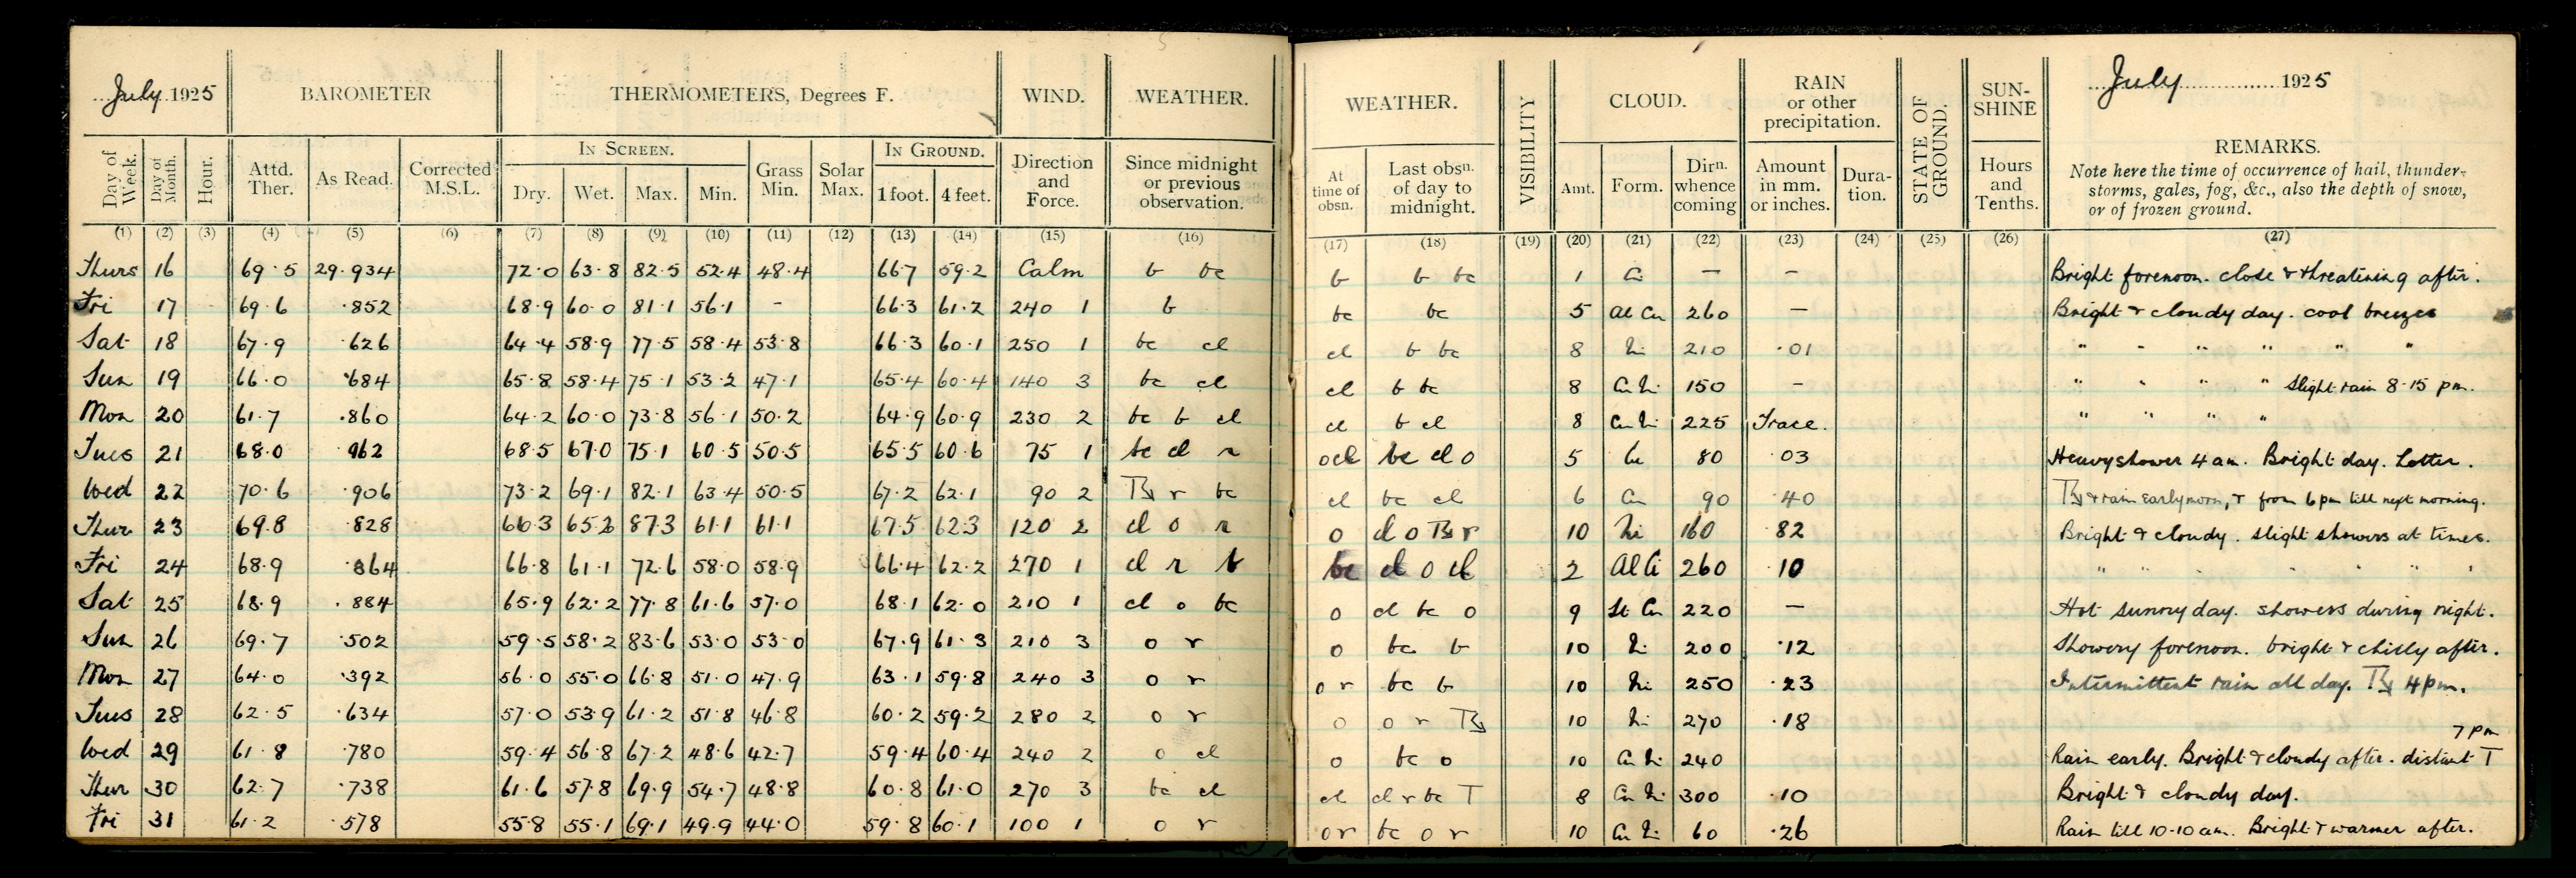 July 1925 BAROMETER THERMOMETERS, Degrees F. WIND. WEATHER.
Day of Week. Day of Month. Hour. Attd. Ther. As Read. Corrected M.S.L. IN SCREEN. Dry. Wet. Max. Min. Grass Min. Solar Max. IN GROUND. 1 foot. 4 feet. Direction and Force. Since midnight or previous observation.
(1) (2) (3) (4) (5) (6) (7) (8) (9) (10) (11) (12) (13) (14) (15) (16)
Thurs 16 69.5 29.934 72.0 63.8 82.5 52.4 48.4 66.7 59.2 Calm b bc
Fri 17 69.6 .852 68.9 60.0 81.1 56.1 - 66.3 61.2 240 1 b
Sat 18 67.9 .626 64.4 58.9 77.5 58.4 53.8 66.3 60.1 250 1 bc cl
Sun 19 66.0 .684 65.8 58.4 75.1 53.2 47.1 65.4 60.4 140 3 bc cl
Mon 20 61.7 .860 64.2 60.0 73.8 56.1 50.2 64.9 60.9 230 2 bc b cl
Tues 21 68.0 .962 68.5 67.0 75.1 60.5 50.5 65.5 60.6 75 1 bc cl r
Wed 22 70.6 .906 73.2 69.1 82.1 63.4 50.5 67.2 62.1 90 2 r bc
Thur 23 69.8 .828 66.3 65.2 87.3 61.1 61.1 67.5 62.3 120 2 cl o r
Fri 24 68.9 .864 66.8 61.1 72.6 58.0 58.9 66.4 62.2 270 1 cl r b
Sat 25 68.9 .884 65.9 62.2 77.8 61.6 57.0 68.1 62.0 210 1 cl o bc
Sun 26 69.7 .502 59.5 58.2 83.6 53.0 53.0 67.9 61.3 210 3 o r
Mon 27 64.0 .392 56.0 55.0 66.8 51.0 47.9 63.1 59.8 240 3 o r
Tues 28 62.5 .634 57.0 53.9 61.2 51.8 46.8 60.2 59.2 280 2 o r
Wed 29 61.8 .780 59.4 56.8 67.2 48.6 42.7 59.4 60.4 240 2 o cl
Thur 30 62.7 .738 61.6 57.8 69.9 54.7 48.8 60.8 61.0 270 3 bc cl
Fri 31 61.2 .578 55.8 55.1 69.1 49.9 44.0 59.8 60.1 100 1 o r
WEATHER. VISIBILITY CLOUD. RAIN or other precipitation. STATE OF GROUND. SUN-SHINE July 1925
At time of obsn. Last obsn. of day to midnight. Amt. Form. Dirn. whence coming Amount in mm. or inches. Dura-tion. Hours and Tenths. REMARKS.
Note here the time of occurrence of hail, thunder-
storms, gales, fog, &c., also the depth of snow,
or of frozen ground.
(17) (18) (19) (20) (21) (22) (23) (24) (25) (26) (27)
b b bc 1 Ci — — Bright forenoon. close & threatening after.
bc bc 5 Al Cu 260 — Bright & cloudy day. cool breezes
cl b bc 8 Ni 210 .01 " " " " " "
cl b bc 8 Cu Ni 150 - " " " " Slight rain 8-15 pm.
cl b cl 8 Cu Ni 225 Trace. " " " "
ocl bc cl o 5 Cu 80 .03 Heavy shower 4 am. Bright day. Hotter.
cl bc cl 6 Cu 90 .40 & rain early morn, & from 6 pm till next morning.
o cl o r 10 Ni 160 .82 Bright & cloudy. slight showers at times.
bc cl o cl 2 Al Ci 260 .10 " " " " " "
o cl bc o 9 St Cu 220 — Hot sunny day. showers during night.
o bc b 10 Ni 200 .12 Showery forenoon. bright & chilly after.
o r bc b 10 Ni 250 .23 Intermittent rain all day. 4 pm.
o o r 10 Ni 270 .18
7 pm
o bc o 10 Cu Ni 240 Rain early. Bright & cloudy after. distant T
cl cl r bc T 8 Cu Ni 300 .10 Bright & cloudy day.
or bc o r 10 Cu Ni 60 .26 Rain till 10-10 am. Bright & warmer after.